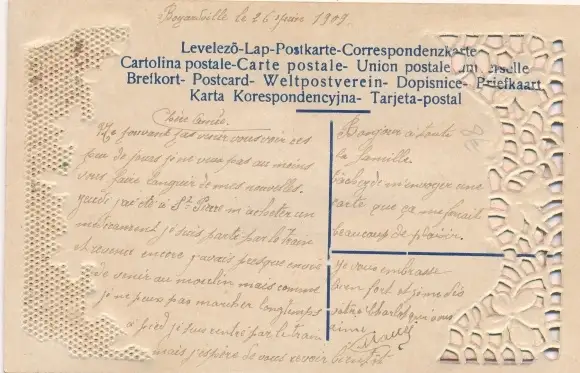 Boyardville le 26 juin 1909.
Levelező-Lap-Postkarte-Correspondenzkarte
Cartolina postale-Carte postale- Union postale universelle
Brefkort- Postcard- Weltpostverein- Dopisnice- Briefkaart
Karta Korespondencyjna- Tarjeta-postal
Chère Aimée.
Ne pouvant pas venir vous voir ces
jours je ne veux pas au moins
vous faire languir de mes nouvelles.
jeudi j'ai été à St Pierre m'acheter un
médicament je suis partie par le train
et revenue encore j'avais presque envie
de venir au moulin mais comme
je ne peux pas marcher longtemps
à pied je suis rentré par le train
mais j'espère de vous revoir bientôt
Bonjour à toute
la famille
m'envoyer une
carte que ça me ferait
beaucoup de plaisir.
je vous embrasse
bien fort et je me dis
votre Charles qui vous
aime